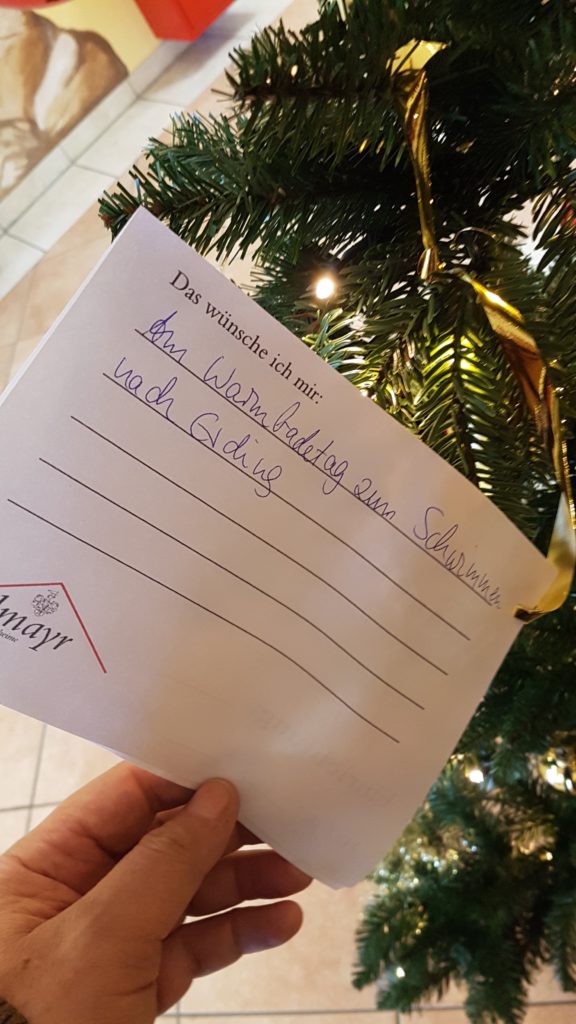 Das wünsche ich mir:
Am Warmbadetag zum Schwimmen
nach Erding
lmayr